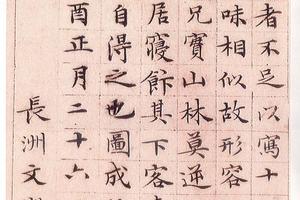 者不足以寫十
味相似故形容
兄寶山林莫逆
居寢餘其下客
自得之也圖成
酉正月二十六
長洲文